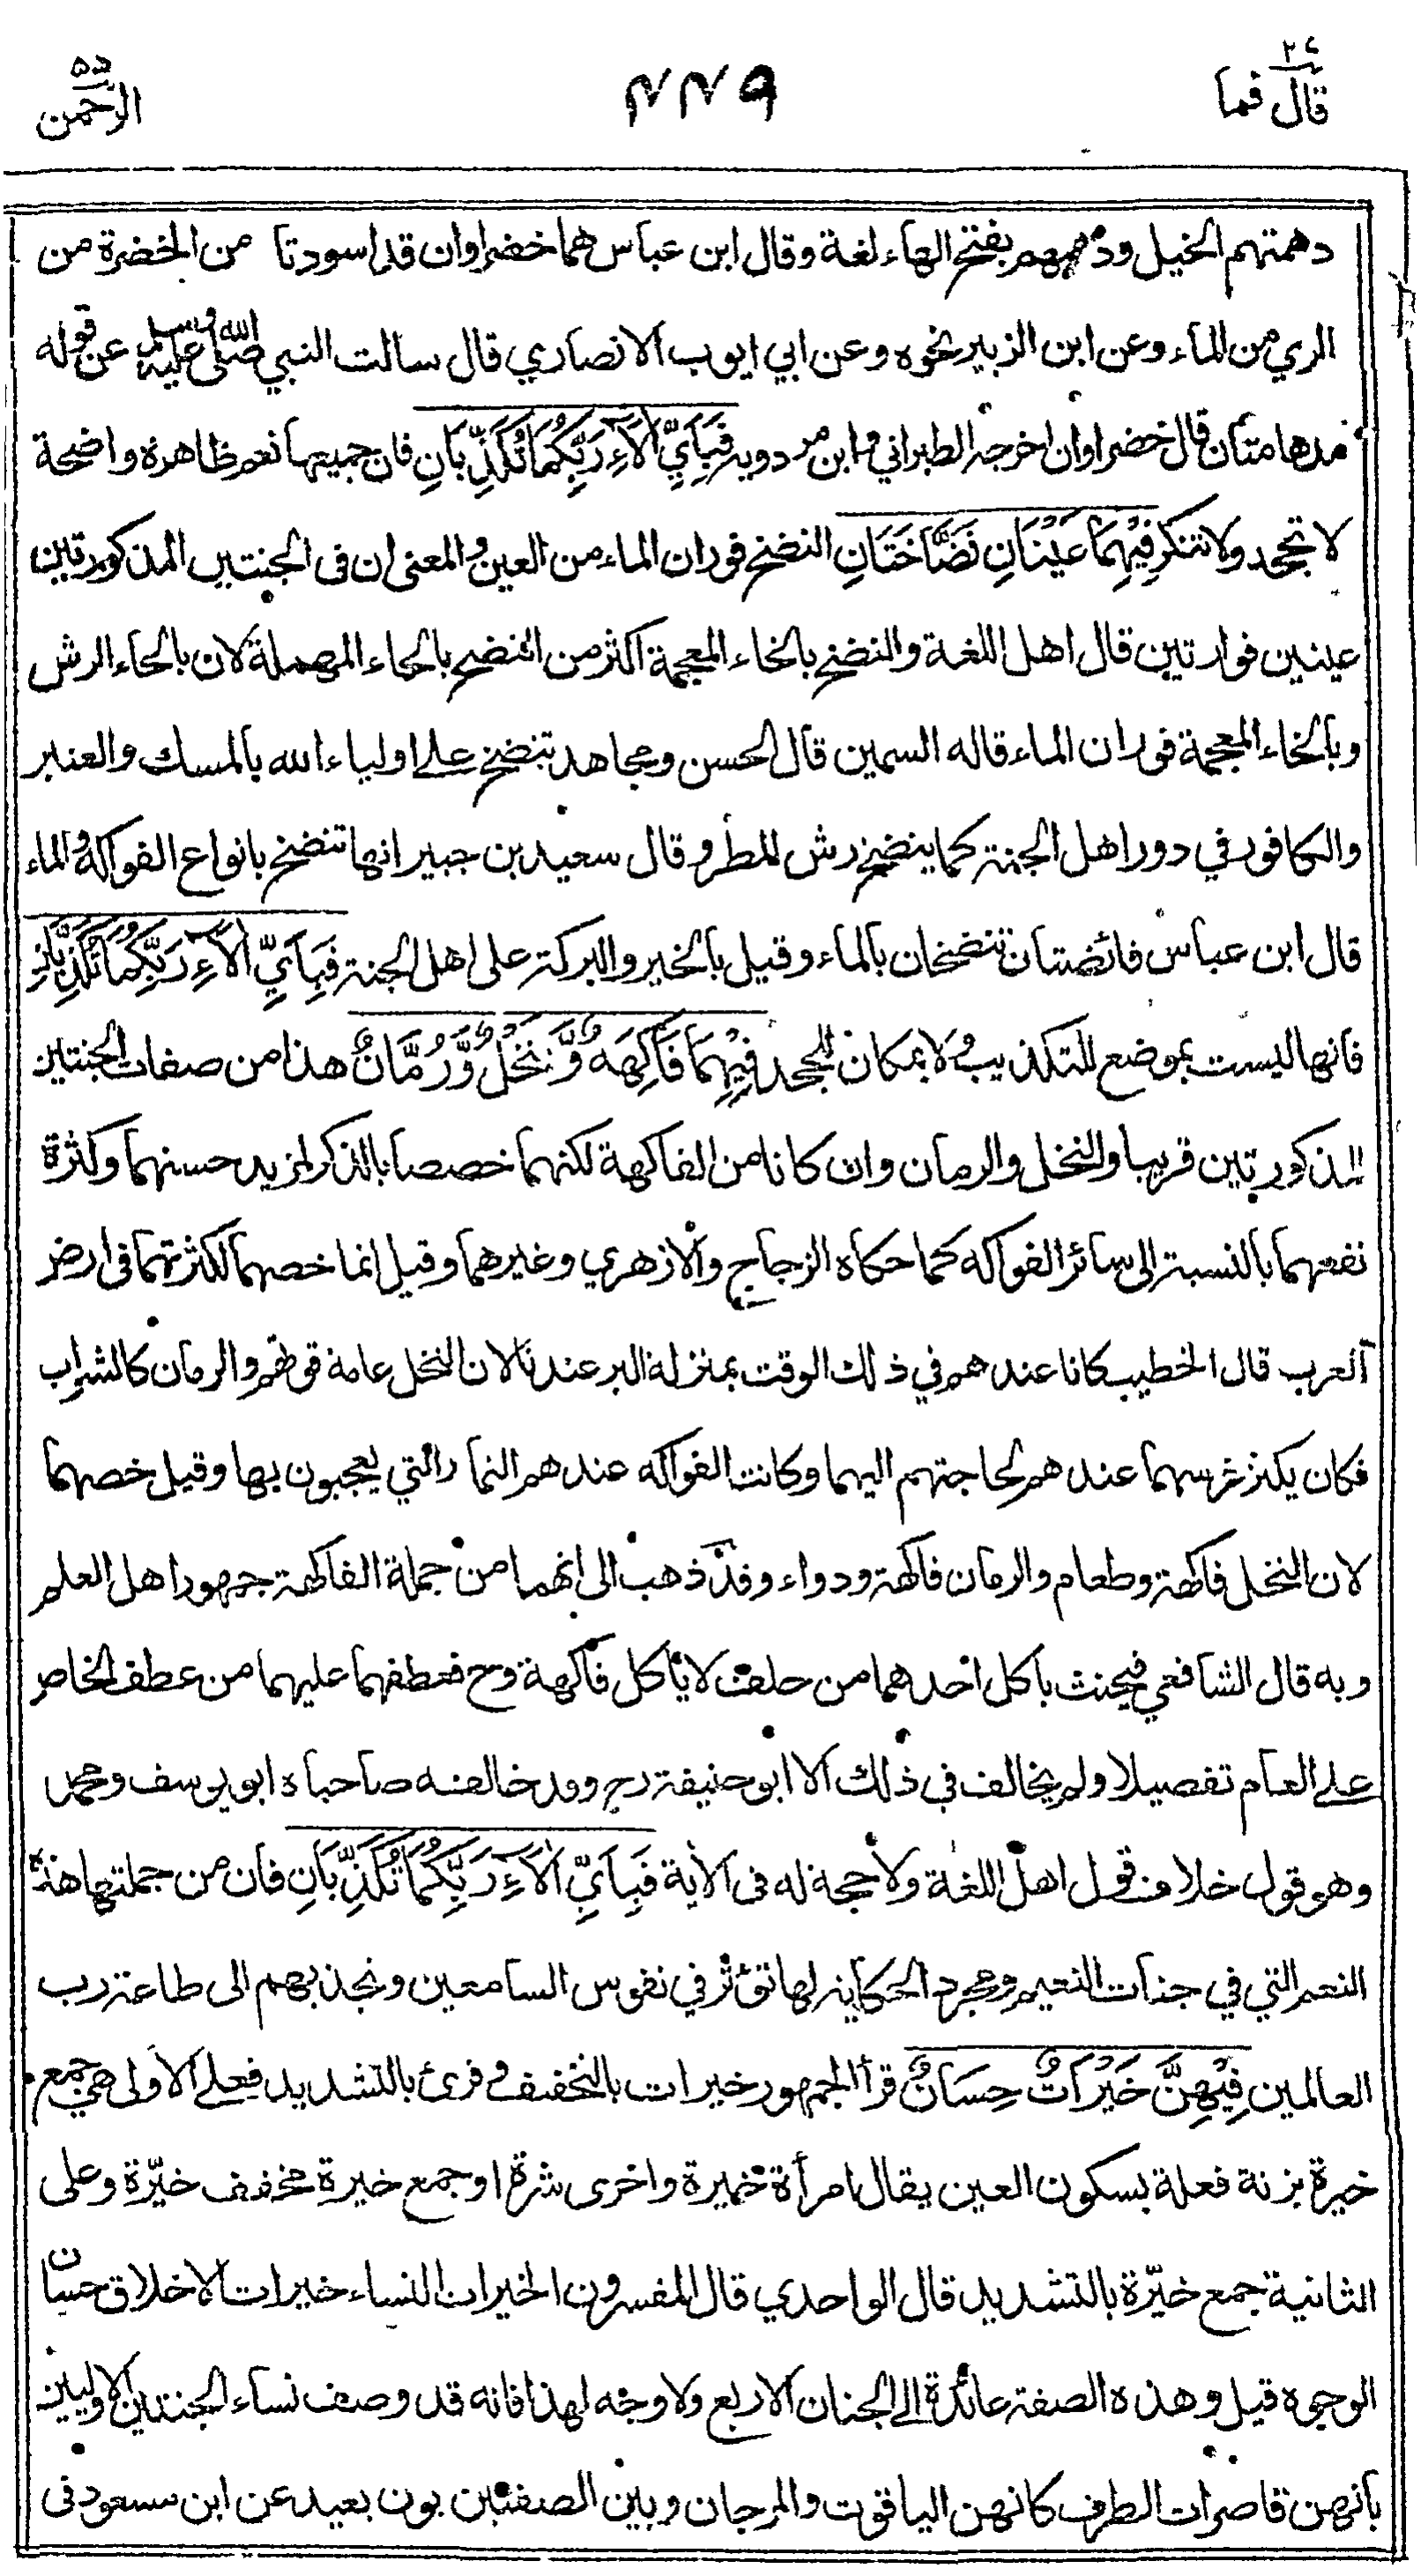 قال فما ٢٧
٢٢٩
الرحمن ٥٥
دهمتهم الخيل ودهمهم بفتح الهاء لغة وقال ابن عباس هما خضراوان قد اسودتا من الخضرة من
الري من الماء وعن ابن الزبير نحوه وعن ابي ايوب الانصاري قال سالت النبي صلى الله عليه وسلم عن قوله
مدهامتان قال خضراوان اخرجه الطبراني وابن مردويه فَبِأَيِّ اٰلَآءِ رَبِّكُمَا تُكَذِّبَانِ فان جميعها نعم ظاهرة واضحة
لا تجحد ولا تنكر فِيْهِمَا عَيْنَانِ نَضَّاخَتَانِ النضخ فوران الماء من العين والمعنى ان فى الجنتين المذكورتين
عينين فوارتين قال اهل اللغة والنضخ بالخاء المعجمة اكثر من النضح بالحاء المهملة لان بالحاء الرش
وبالخاء المعجمة فوران الماء قاله السمين قال الحسن ومجاهد تنضخ على اولياء الله بالمسك والعنبر
والكافور في دور اهل الجنة كما ينضخ رش المطر وقال سعيد بن جبير انها تنضخ بانواع الفواكه والماء
قال ابن عباس فائضتان تنضخان بالماء وقيل بالخير والبركة على اهل الجنة فَبِأَيِّ اٰلَآءِ رَبِّكُمَا تُكَذِّبَانِ
فانها ليست بموضع للتكذيب ولا بمكان للجحد فِيْهِمَا فَاكِهَةٌ وَّنَخْلٌ وَّرُمَّانٌ هذا من صفات الجنتين
المذكورتين قريبا والنخل والرمان وان كانا من الفاكهة لكنهما خصصا بالذكر لمزيد حسنهما وكثرة
نفعهما بالنسبة الى سائر الفواكه كما حكاه الزجاج والازهري وغيرهما وقيل انما خصهما لكثرتهما فى ارض
العرب قال الخطيب كانا عندهم في ذلك الوقت بمنزلة البر عندنا لان النخل عامة قوتهم والرمان كالشراب
فكان يكثر غرسهما عندهم لحاجتهم اليهما وكانت الفواكه عندهم الثمار التي يعجبون بها وقيل خصهما
لان النخل فاكهة وطعام والرمان فاكهة ودواء وقد ذهب الى انهما من جملة الفاكهة جمهور اهل العلم
وبه قال الشافعي فيحنث باكل احدهما من حلف لا ياكل فاكهة وح فعطفهما عليهما من عطف الخاص
على العام تفصيلا ولم يخالف في ذلك الا ابو حنيفة رح وقد خالفه صاحباه ابو يوسف ومحمد
وهو قول خلاف قول اهل اللغة ولا حجة له فى الاية فَبِأَيِّ اٰلَآءِ رَبِّكُمَا تُكَذِّبَانِ فان من جملتها هذه
النعم التي في جنات النعيم ومجرد الحكاية لها تؤثر في نفوس السامعين وتجذبهم الى طاعة رب
العالمين فِيْهِنَّ خَيْرَاتٌ حِسَانٌ قرأ الجمهور خيرات بالتخفيف وقرئ بالتشديد فعلى الاولى هي جمع
خيرة بزنة فعلة بسكون العين يقال امرأة خيرة واخرى شرة او جمع خيرة مخفف خيّرة وعلى
الثانية جمع خيّرة بالتشديد قال الواحدي قال المفسرون الخيرات النساء خيرات الاخلاق حسان
الوجوه قيل وهذه الصفة عائدة الى الجنان الاربع ولا وجه لهذا فانه قد وصف نساء الجنتين الاوليين
بانهن قاصرات الطرف كانهن الياقوت والمرجان وبين الصفتين بون بعيد عن ابن مسعود فى